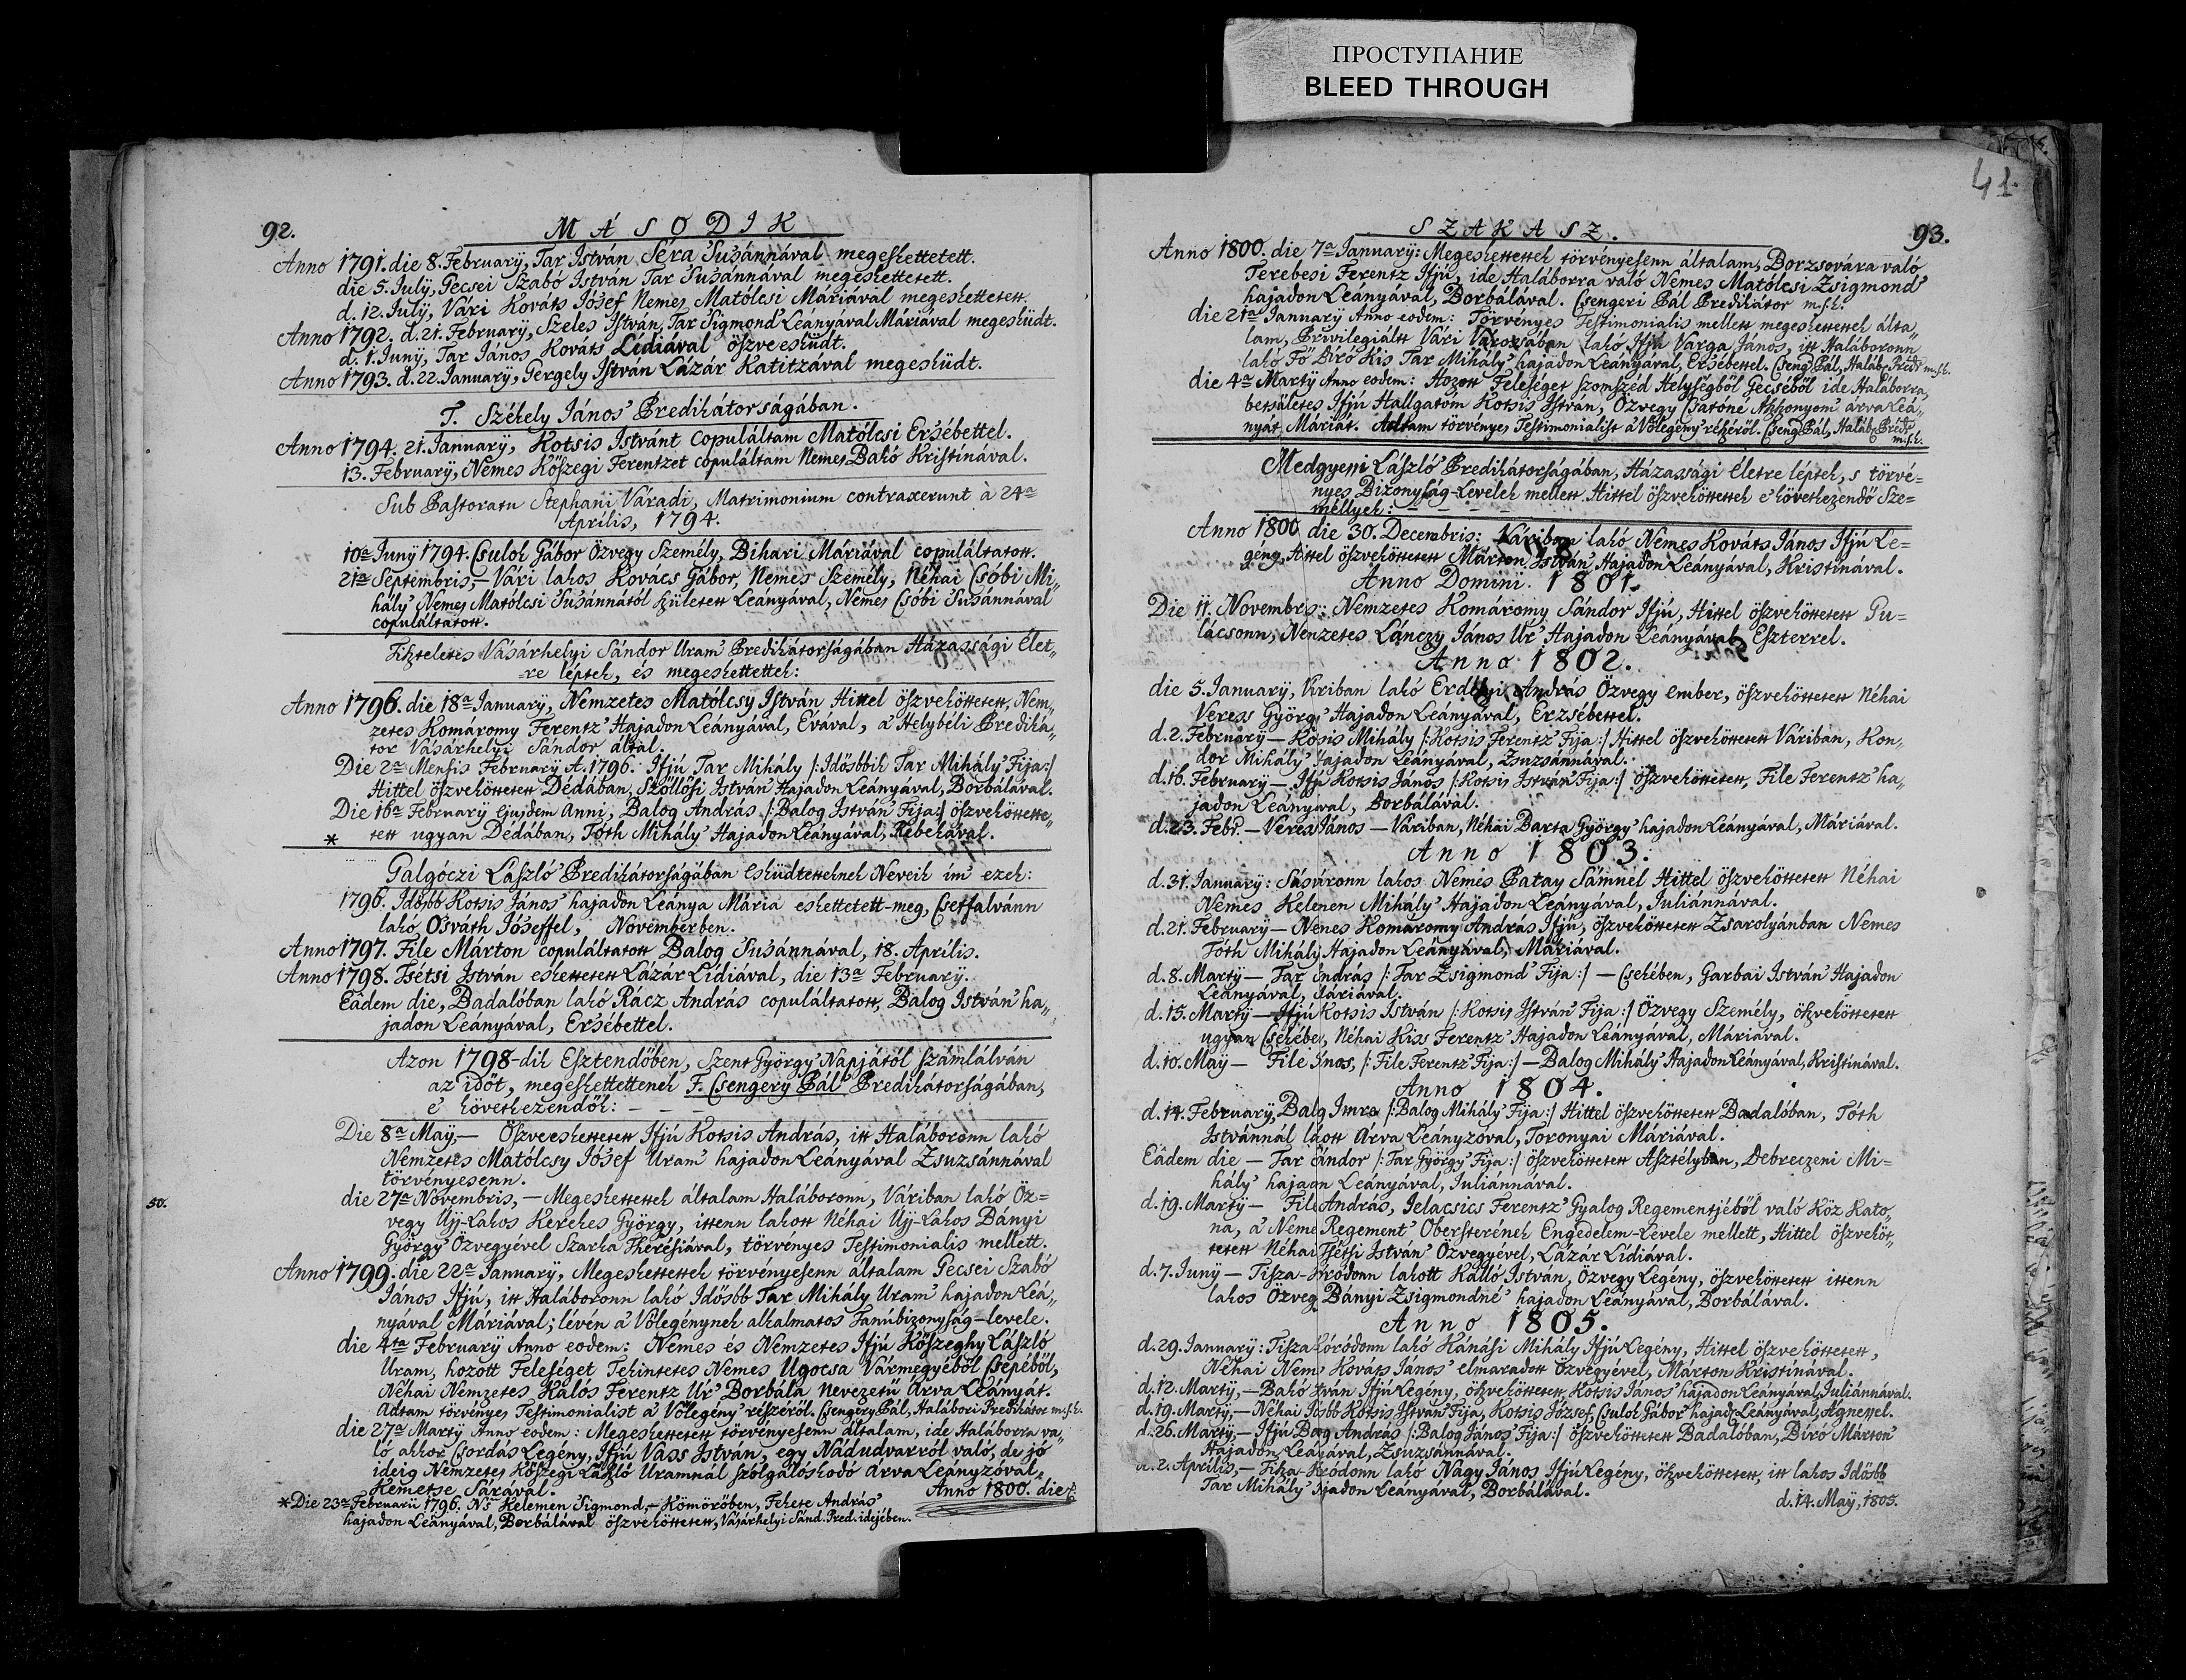 ПРОСТУПАНИЕ
BLEED THROUGH
41.
92.
MÁSODIK
Anno 1791. die 8. Februarÿ, Tar István Séra Susánnával megeskettetett.
die 5. Julÿ, Gecsei Szabó István Tar Susánnával megeskettetett.
d. 12. Julÿ, Vári Kováts Jósef Nemes Matólcsi Máriával megeskettetett.
Anno 1792. d. 21. Februarÿ, Szeles István, Tar Sigmond' Leányával Máriával megesküdt.
d. 1. Junÿ, Tar János, Kováts Lídiával öszveesküdt.
Anno 1793. d. 22. Januarÿ, Gergely István Lázár Katitzával megesküdt.
T. Székely János' Predikátorságában.
Anno 1794. 21. Januarÿ, Kotsis Istvánt copuláltam Matólcsi Ersébettel.
13. Februarÿ, Nemes Kőszegi Ferentzet copuláltam Nemes Bakó Kristínával.
Sub Pastoratu Stephani Váradi, Matrimonium contraxerunt à 24a
Aprilis, 1794.
10a Junÿ 1794. Csulok Gábor Özvegy Személy, Bihari Máriával copuláltatott.
21a Septembris, – Vári lakos Kovács Gábor, Nemes Személy, Néhai Csóbi Mi„
hály' Nemes Matólcsi Susánnától született Leányával, Nemes Csóbi Susánnával
copuláltatott.
Tiszteletes Vásárhelyi Sándor Uram' Predikátorságában Házassági Élet„
-re léptek, és megeskettettek:
Anno 1796. die 18a January, Nemzetes Matólcsy István Hittel öszveköttetett, Nem„
zetes Komáromy Ferentz' Hajadon Leányával, Évával, a' Helybéli Prediká„
tor Vásárhelyi Sándor által.
Die 2a Mensis Februarÿ A. 1796. Ifjú Tar Mihály /: Idősbbik Tar Mihály' Fija:/
Hittel öszveköttetett Dédában, Szőllősi István' Hajadon Leányával, Borbálával.
Die 16a Februarÿ Ejusdem Anni, Balog András /: Balog István' Fija:/ öszvekötte„
* tett ugyan Dédában, Tóth Mihály' Hajadon Leányával, Rebekával.
Galgóczi László' Predikátorságában esküdtetteknek Neveik ím' ezek:
1796. Idősbb Kotsis János' hajadon Leánya Mária eskettetett-meg, Csetfalvánn
lakó Osváth Jóseffel, Novemberben.
Anno 1797. File Márton copuláltatott Balog Susánnával, 18. Aprilis.
Anno 1798. Tsétsi István eskettetett Lázár Lídiával, die 13a Februarÿ.
Eâdem die, Badalóban lakó Rácz András copuláltatott, Balog István' ha„
jadon Leányával, Ersébettel.
Azon 1798-dik Esztendőben, Szent György' Napjától számlálván
az időt, megeskettettenek T. Csengery Pál' Predikátorságában,
e' következendők: – – –
Die 8a Maÿ, – Öszveeskettetett Ifjú Kotsis András, itt Haláboronn lakó
Nemzetes Matólcsy Jósef Uram' hajadon Leányával Zsuzsánnával
törvényesenn.
50.
die 27a Novembris, – Megeskettettek általam Haláboronn, Váriban lakó Öz=
vegy Ujj-Lakos Kerekes György, ittenn lakott Néhai Ujj-Lakos Bányi
György' Özvegyével Szarka Therésiával, törvényes Testimonialis mellett.
Anno 1799. die 22a January, Megeskettettek törvényesenn általam Gecsei Szabó
János Ifjú, itt Haláboronn lakó Idősbb Tar Mihály Uram' hajadon Leá„
nyával Máriával; lévén a' Vőlegénynek alkalmatos Tanúbizonyság-levele.
die 4ta February Anno eodem: Nemes és Nemzetes Ifjú Kőszeghy László
Uram, hozott Feleséget Tekintetes Nemes Ugocsa Vármegyéből Csepéből,
Néhai Nemzetes Kalós Ferentz Úr' Borbála nevezetű Árva Leányát.
Adtam törvényes Testimonialist a' Vőlegény' részéről. Csengery Pál, Halábori Predikátor m.s.k.
die 27a Marty Anno eodem: Megeskettetett törvényesenn általam, ide Haláborra va„
ló akkor Csordás Legény, Ifjú Vass István, egy Nádudvarról való, de jó
ideig Nemzetes Kőszegi László Uramnál szólgálóskodó Árva Leányzóval,
Kemetse Sárával.
Anno 1800. die
* Die 23a Februarii 1796. Ns Kelemen Sigmond, – Kömörőben, Fekete András'
hajadon Leányával, Borbálával öszveköttetett, Vásárhelyi Sánd. Pred. idejében.
SZAKASZ.
93.
Anno 1800. die 7a Januarÿ: Megeskettettek törvényesenn általam, Borzsovára való
Terebesi Ferentz Ifjú, ide Haláborra való Nemes Matólcsi Zsigmond'
hajadon Leányával, Borbálával. Csengeri Pál Predikátor m.s.k.
die 21a Januarÿ Anno eodem: Törvényes Testimonialis mellett megeskettettek álta„
lam, Privilegiált Vári Városában lakó Ifjú Varga János, itt Haláboronn
lakó Fő Bíró Kis Tar Mihály' hajadon Leányával, Ersébettel. Cseng. Pál, Haláb. Préd. m.s.k.
die 4a Martÿ Anno eodem: Hozott Feleséget szomszéd Helységből Gecséből ide Haláborra,
betsületes Ifjú Hallgatóm Kotsis István, Özvegy Csatóné Aszszonyom' árva Leá„
nyát, Máriát. Adtam törvényes Testimonialist a' Vőlegény' részéről. Cseng. Pál, Haláb. Préd.
m.s.k.
Medgyessi László' Predikátorságában, Házassági életre léptek, s törvé=
nyes Bizonyság-Levelek mellett Hittel öszveköttettek e' következendő Sze=
méllyek: – – – –
Anno 1800 die 30. Decembris: Váriban lakó Nemes Kováts János Ifjú Le=
gény, Hittel öszveköttetett Márton István' Hajadon Leányával, Kristínával.
Anno Domini. 1801.
Die 11. Novembris: Nemzetes Komáromy Sándor Ifjú, Hittel öszveköttetett Gu=
lácsonn, Nemzetes Lánczy János Úr' Hajadon Leányával Eszterrel.
Anno 1802.
die 5. Januarÿ, Váriban lakó Erdélyi András Özvegy ember, öszveköttetett Néhai
Veress György' Hajadon Leányával, Erzsébettel.
d. 2. Februarÿ – Kotsis Mihály /: Kotsis Ferentz' Fija:/ Hittel öszveköttetett Váriban, Kon„
dor Mihály' hajadon Leányával, Zsuzsánnával.
d. 16. Februarÿ – Ifjú Kotsis János /: Kotsis István' Fija:/ öszveköttetett, File Ferentz' ha„
jadon Leányával, Borbálával.
d. 23. Febr. – Veres János – Váriban, Néhai Barta György' hajadon Leányával, Máriával.
Anno 1803.
d. 31. Januarÿ: Sásváronn lakos Nemes Patay Sámuel Hittel öszveköttetett Néhai
Nemes Kelemen Mihály' Hajadon Leányával, Juliánnával.
d. 21. Februarÿ – Nemes Komáromy András Ifjú, öszveköttetett Zsarolyánban Nemes
Tóth Mihály Hajadon Leányával, Máriával.
d. 8. Martÿ – Tar András /: Tar Zsigmond' Fija:/ – Csekében, Garbai István' Hajadon
Leányával, Máriával.
d. 15. Martÿ – Ifjú Kotsis István /: Kotsis István' Fija:/ Özvegy Személy, öszveköttetett
ugyan Csekében, Néhai Kiss Ferentz' Hajadon Leányával, Máriával.
d. 10. Maÿ – File János, /: File Ferentz' Fija:/ – Balog Mihály' Hajadon Leányával, Kristínával.
Anno 1804.
d. 14. Februarÿ, Balog Imre /: Balog Mihály' Fija:/ Hittel öszveköttetett Badalóban, Tóth
Istvánnál lakott Árva Leányzóval, Toronyai Máriával.
Eâdem die – Tar Sándor /: Tar György' Fija:/ öszveköttetett Asztélyban, Debreczeni Mi=
hály' hajadon Leányával, Juliánnával.
d. 19. Martÿ – File András, Jelacsics Ferentz' Gyalog Regementjéből való Köz Kato„
na, a' Nemes Regement' Obersterének Engedelem-Levele mellett, Hittel öszveköt„
tetett Néhai Tsétsi István' Özvegyével, Lázár Lídiával.
d. 7. Junÿ – Tisza-Kóródonn lakott Kalló István, Özvegy Legény, öszveköttetett ittenn
lakos Özvegy Bányi Zsigmondné' hajadon Leányával, Borbálával.
Anno 1805.
d. 29. Januarÿ: Tisza Kóródonn lakó Kánási Mihály Ifjú Legény, Hittel öszveköttetett,
Néhai Nemes Kováts János' elmaradott Özvegyével, Márton Kristínával.
d. 12. Martÿ, – Bakó István Ifjú Legény, öszveköttetett, Kotsis János' hajadon Leányával, Juliánnával.
d. 19. Martÿ, – Néhai Idősbb Kotsis István' Fija, Kotsis József, Csulok Gábor' hajad. Leányával, Ágnessel.
d. 26. Martÿ, – Ifjú Balog András /: Balog János' Fija:/ öszveköttetett Badalóban, Bíró Márton'
Hajadon Leányával, Zsuzsánnával.
d. 2. Aprilis, – Tisza-Kóródonn lakó Nagy János Ifjú Legény, öszveköttetett, itt lakos Idősbb
Tar Mihály' hajadon Leányával, Borbálával.
d. 14. Maÿ, 1805.